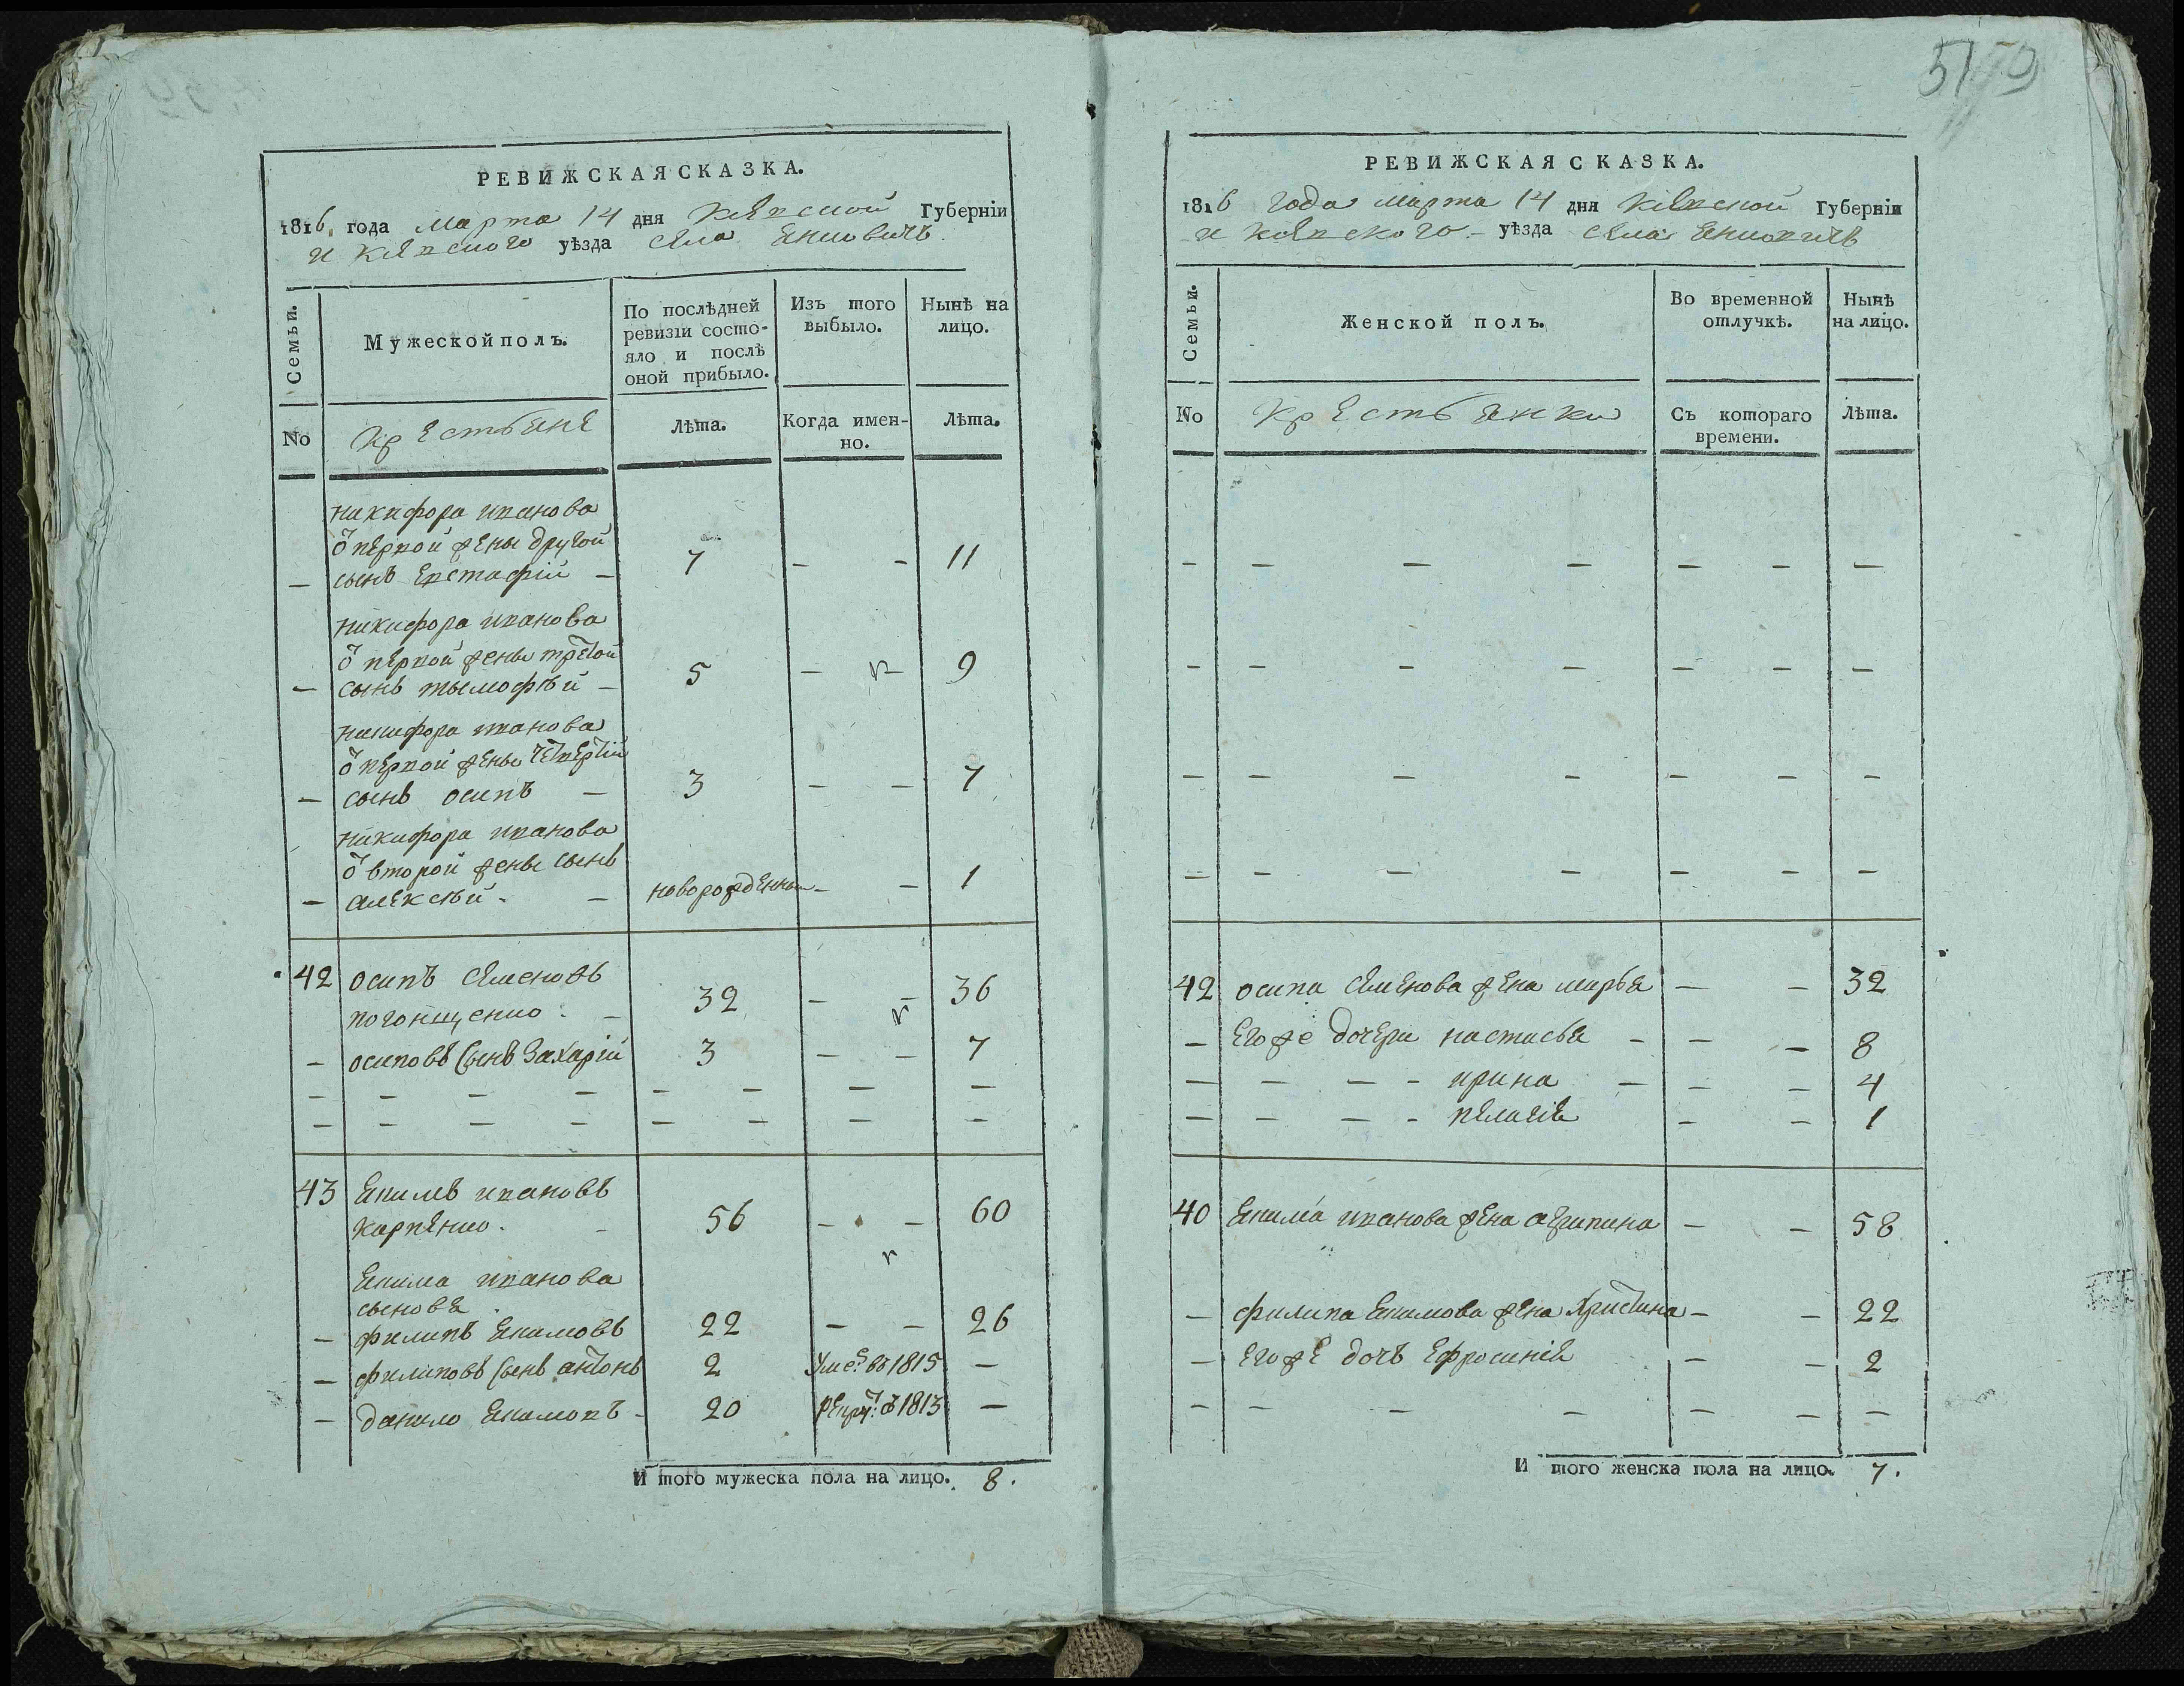 5179
РЕВИЖСКАЯ СКАЗКА.
1816 года марта 14 дня Кіевской Губерніи
и Кіевского уѣзда села
Семьи.
Мужеской полъ.
По послѣдней ревизіи состояло и послѣ оной прибыло.
Изъ того выбыло.
Нынѣ на лицо.
No
Крестьяне
Лѣта.
Когда именно.
Лѣта.
никифора иванова
ѿ первой жены другой
— сынъ Евстафій — 7 — — 11
никифора иванова
ѿ первой жены третой
— сынъ тымофѣй — 5 — — 9
никифора иванова
ѿ первой жены четвертій
— сынъ осипъ — 3 — — 7
никифора иванова
ѿ второй жены сынъ
— алексѣй. — новорожденны — — 1
42 осипъ семеновъ
— 32 — — 36
— осиповъ сынъ Захарій 3 — — 7
— — — — — — — —
— — — — — — — —
43 Екимъ ивановъ
карпенко. — 56 — — 60
Екима иванова
сыновя
— филипъ Екимовъ 22 — — 26
— филиповъ сынъ антонъ 2 Умер. въ 1815 —
— данило Екимовъ — 20 Рекру: в 1813 —
И того мужеска пола на лицо. 8.
РЕВИЖСКАЯ СКАЗКА.
1816 года марта 14 дня Кіевской Губерніи
и Кіевского — уѣзда села
Семьи.
Женской полъ.
Во временной отлучкѣ.
Нынѣ на лицо.
No
Крестьянки
Съ котораго времени.
Лѣта.
— — — — — — —
— — — — — — —
— — — — — — —
— — — — — — —
42 осипа семенова жена марья — — 32
— Его же дочери настасья — — — 8
— — — — ирина — — — 4
— — — — пелагія — — 1
40 Екима иванова жена агрипина — — 58
— филипа Екимова жена Христина — — 22
— Его же дочъ Ефросинія — — 2
— — — — — — —
И того женска пола на лицо. 7.